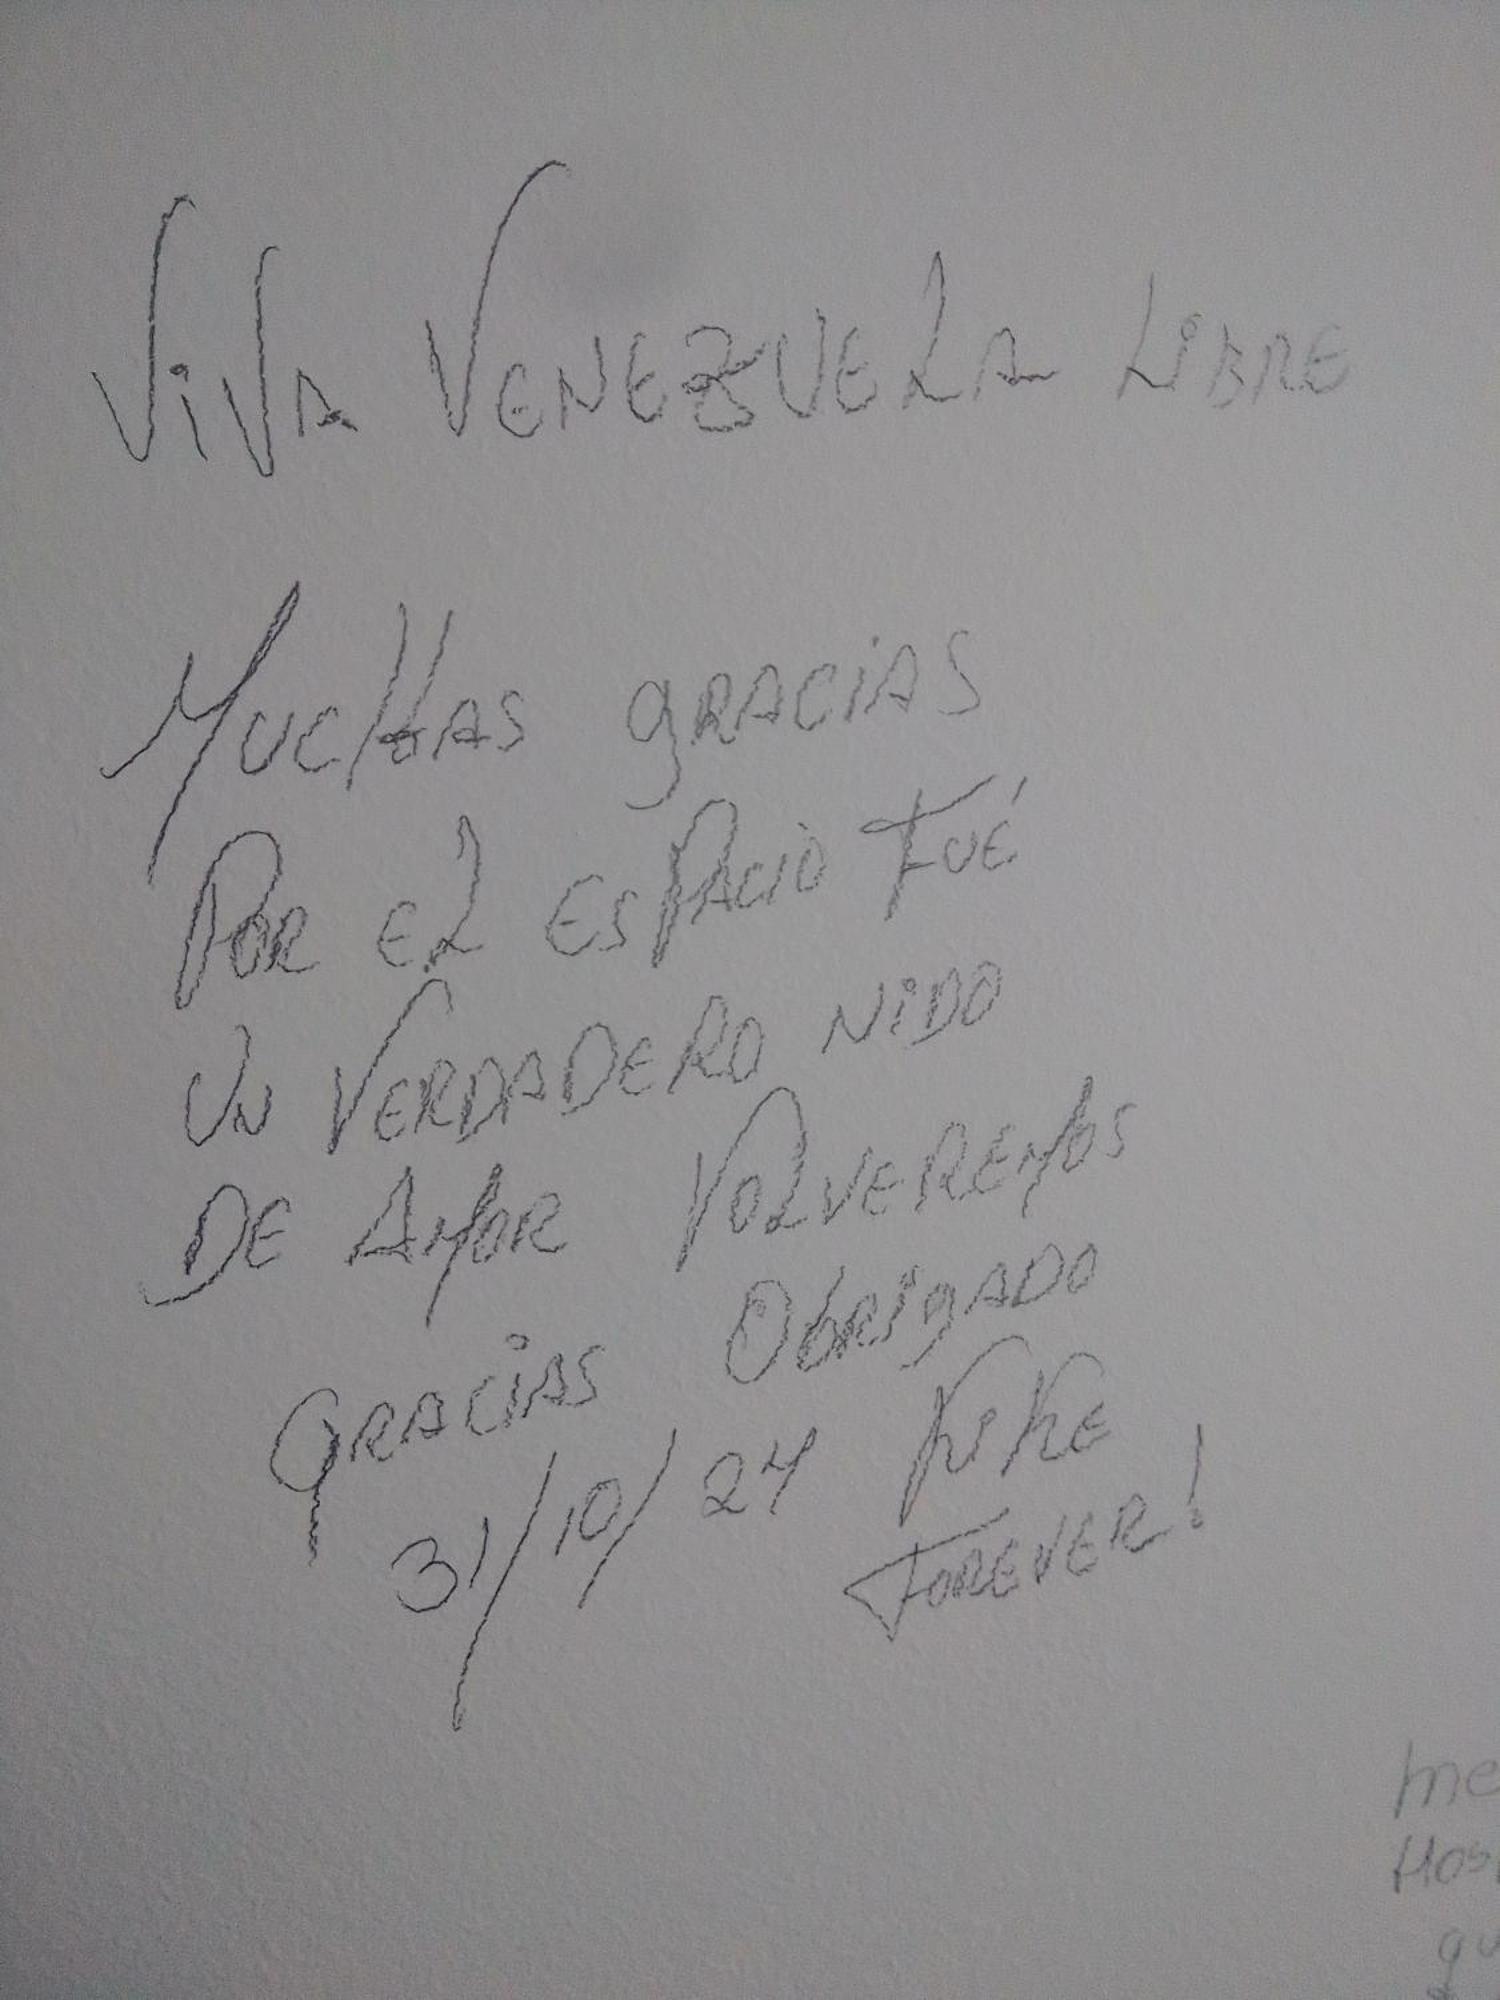 ViVA VENEZUELA LiBRE
MUCHAS gRACiAS
POR EL ESPACiO FUÉ
UN VERDADERO NiDO
DE AMOR VOLVEREMOS
gRACiAS ObRigADO
31/10/24 NiKE
FOREVER!
me
HOS
qu